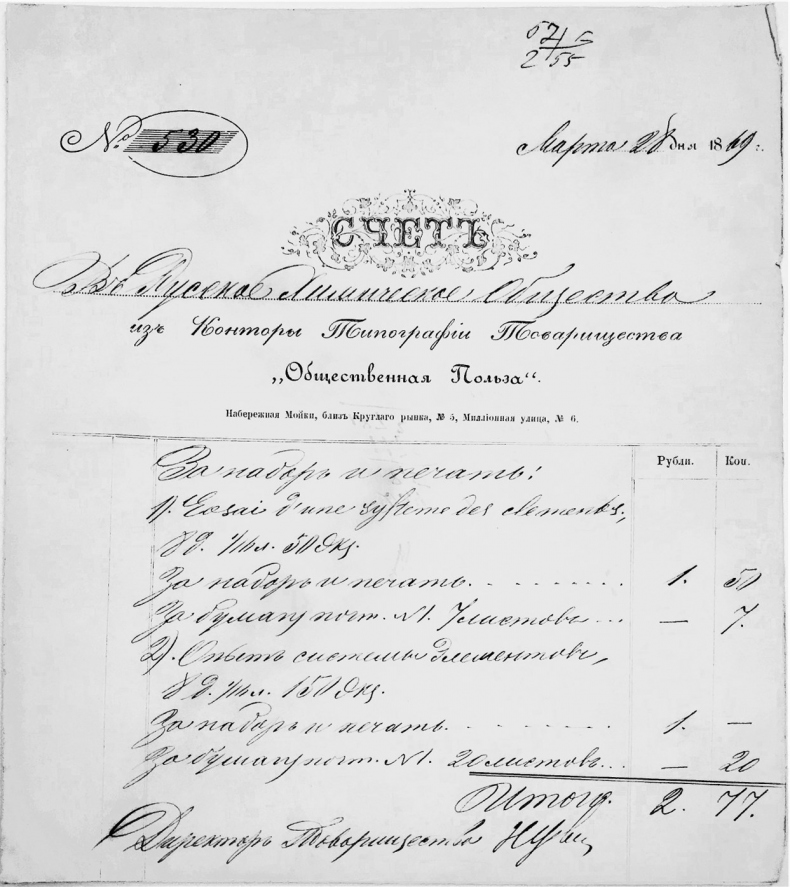 57
2 55
№ 530
Марта 28 дня 1869 г.
СЧЕТЪ
Въ Русское Химическое Общество
изъ Конторы Типографіи Товарищества
„Общественная Польза“.
Набережная Мойки, близъ Круглаго рынка, № 5, Милліонная улица, № 6.
Рубли. Коп.
За наборъ и печать:
1). Essai d'une système des elements,
8 д. 1/16 л. 50 экз.
За наборъ и печать. 1. 50
За бумагу почт. №1. 7 листовъ — 7.
2). Опытъ системы Элементовъ,
8 д. 1/16 л. 150 экз.
За наборъ и печать. 1. —
За бумагу почт. №1. 20 листовъ — 20
Итого. 2. 77.
Директоръ Товарищества